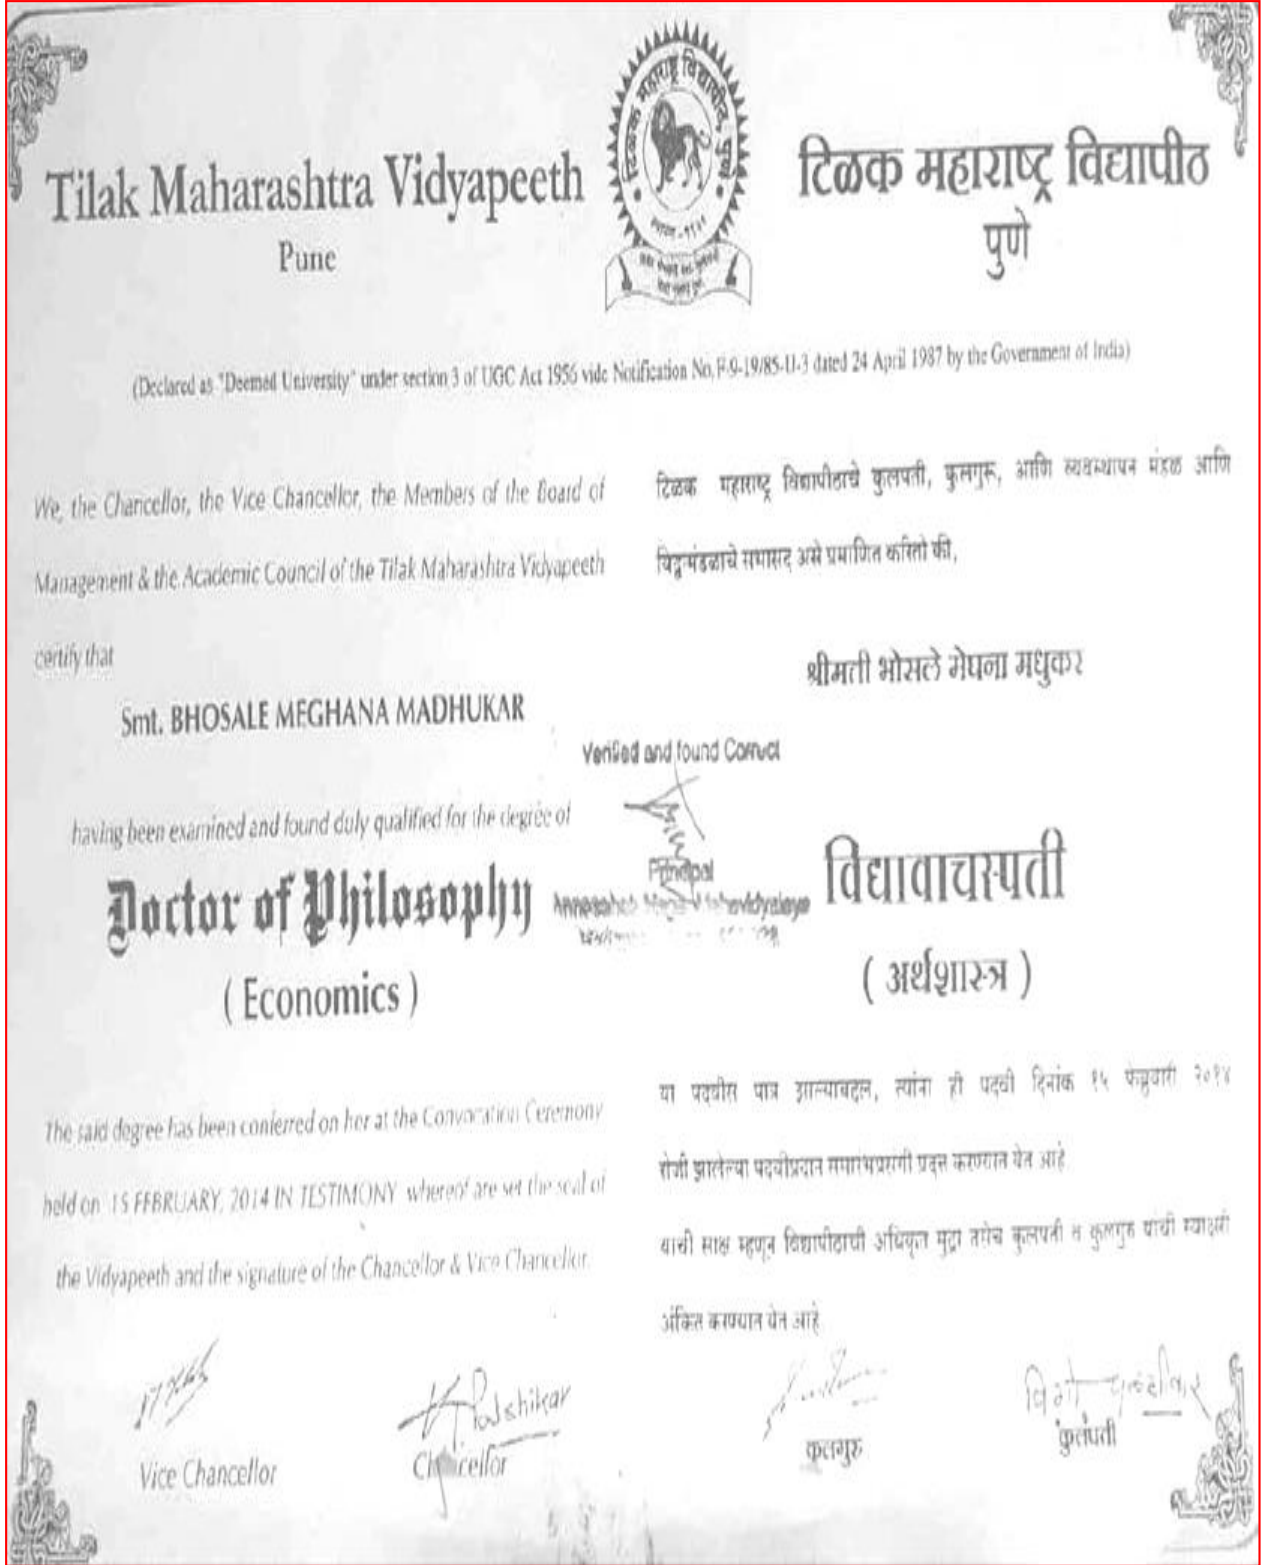 Tilak Maharashtra Vidyapeeth
Pune
टिळक महाराष्ट्र विद्यापीठ, पुणे
टिळक महाराष्ट्र विद्यापीठ
पुणे
(Declared as "Deemed University" under section 3 of UGC Act 1956 vide Notification No. F-9-19/85-U-3 dated 24 April 1987 by the Government of India)
We, the Chancellor, the Vice Chancellor, the Members of the Board of
Management & the Academic Council of the Tilak Maharashtra Vidyapeeth
certify that
Smt. BHOSALE MEGHANA MADHUKAR
having been examined and found duly qualified for the degree of
Doctor of Philosophy
( Economics )
The said degree has been conferred on her at the Convocation Ceremony
held on 15 FEBRUARY, 2014 IN TESTIMONY whereof are set the seal of
the Vidyapeeth and the signature of the Chancellor & Vice Chancellor.
Vice Chancellor
Chancellor
Verified and found Correct
Principal
टिळक महाराष्ट्र विद्यापीठाचे कुलपती, कुलगुरू, आणि व्यवस्थापन मंडळ आणि
विद्वन्मंडळाचे सभासद असे प्रमाणित करितो की,
श्रीमती भोसले मेघना मधुकर
विद्यावाचस्पती
( अर्थशास्त्र )
या पदवीस पात्र झाल्याबद्दल, त्यांना ही पदवी दिनांक १५ फेब्रुवारी २०१४
रोजी झालेल्या पदवीप्रदान समारंभप्रसंगी प्रदान करण्यात येत आहे
याची साक्ष म्हणून विद्यापीठाची अधिकृत मुद्रा तसेच कुलपती व कुलगुरु यांची स्वाक्षरी
अंकित करण्यात येत आहे
कुलगुरु
कुलपती